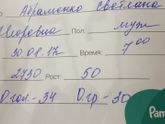 Абраменко Светлана
Игоровна Пол: муж
30.08.17 Время: 7 00
2730 Рост: 50
Oгол.-34 Oгр-30
Pam